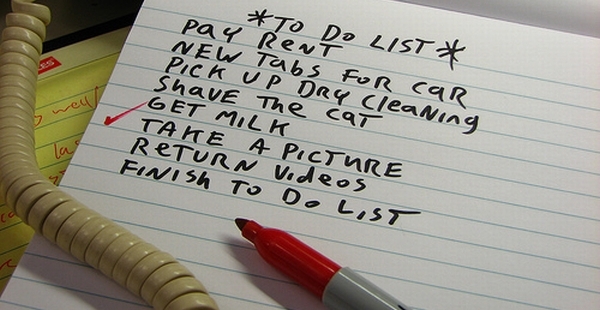 *TO DO LIST*
PAY RENT
NEW TABS FOR CAR
PICK UP DRY CLEANING
SHAVE THE CAT
GET MILK
TAKE A PICTURE
RETURN VIDEOS
FINISH TO DO LIST